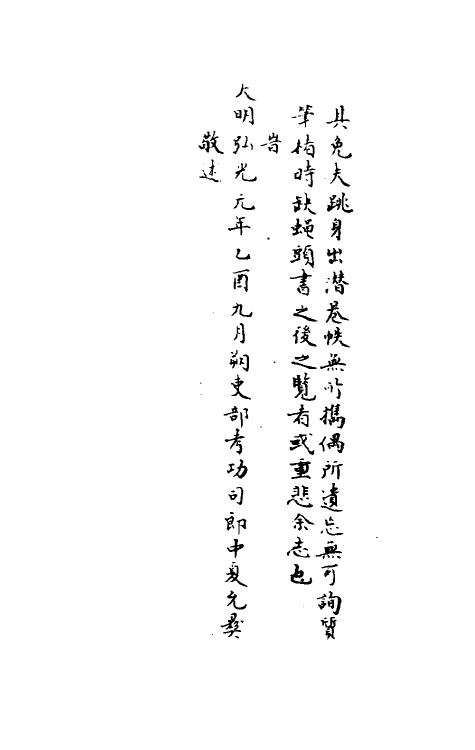 其免夫跳身出潜卷帙無所攜偶所遺忘無可詢質
筆楮時缺蝇頭書之後之覽者或重悲余志也
旹
大明弘光元年乙酉九月朔吏部考功司郎中夏允彝
敬述